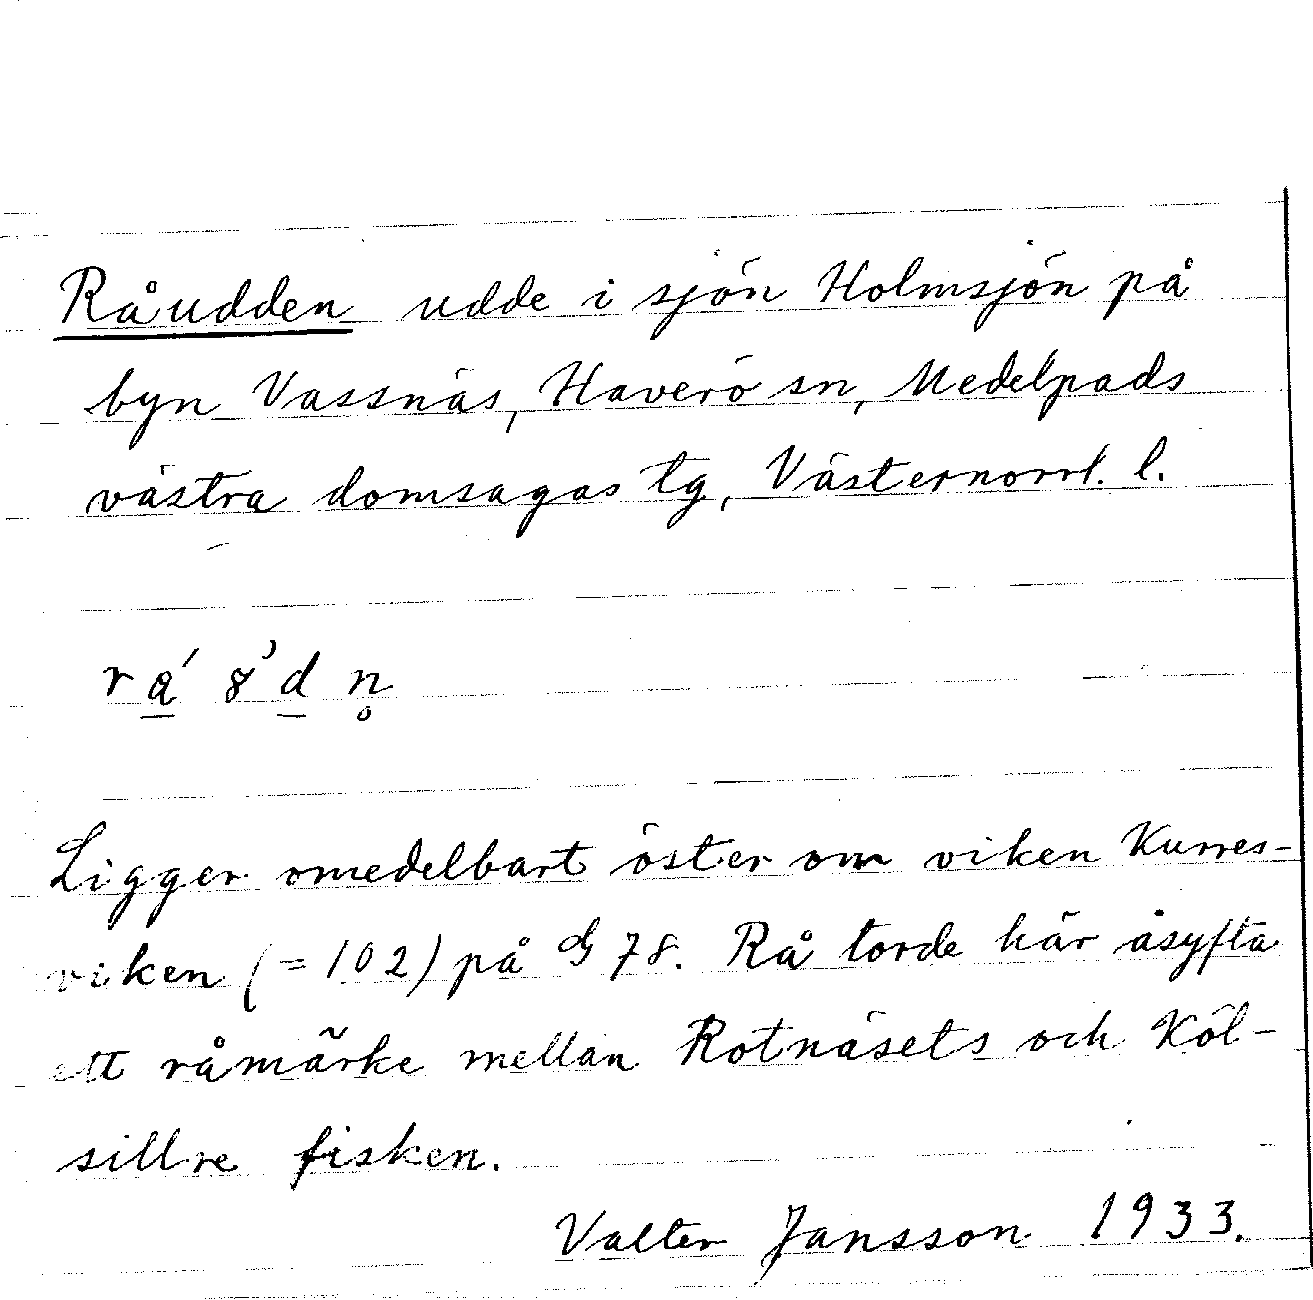 Råudden udde i sjön Holmsjön på
byn Vassnäs, Haverö sn, Medelpads
västra domsagas tg, Västernorrl. l.
Ligger omedelbart öster om viken Kurres-
viken (= 102) på 78. Rå torde här åsyfta
ett råmärke mellan Rotnäsets och Köl-
sillre fisken.
Valter Jansson 1933.